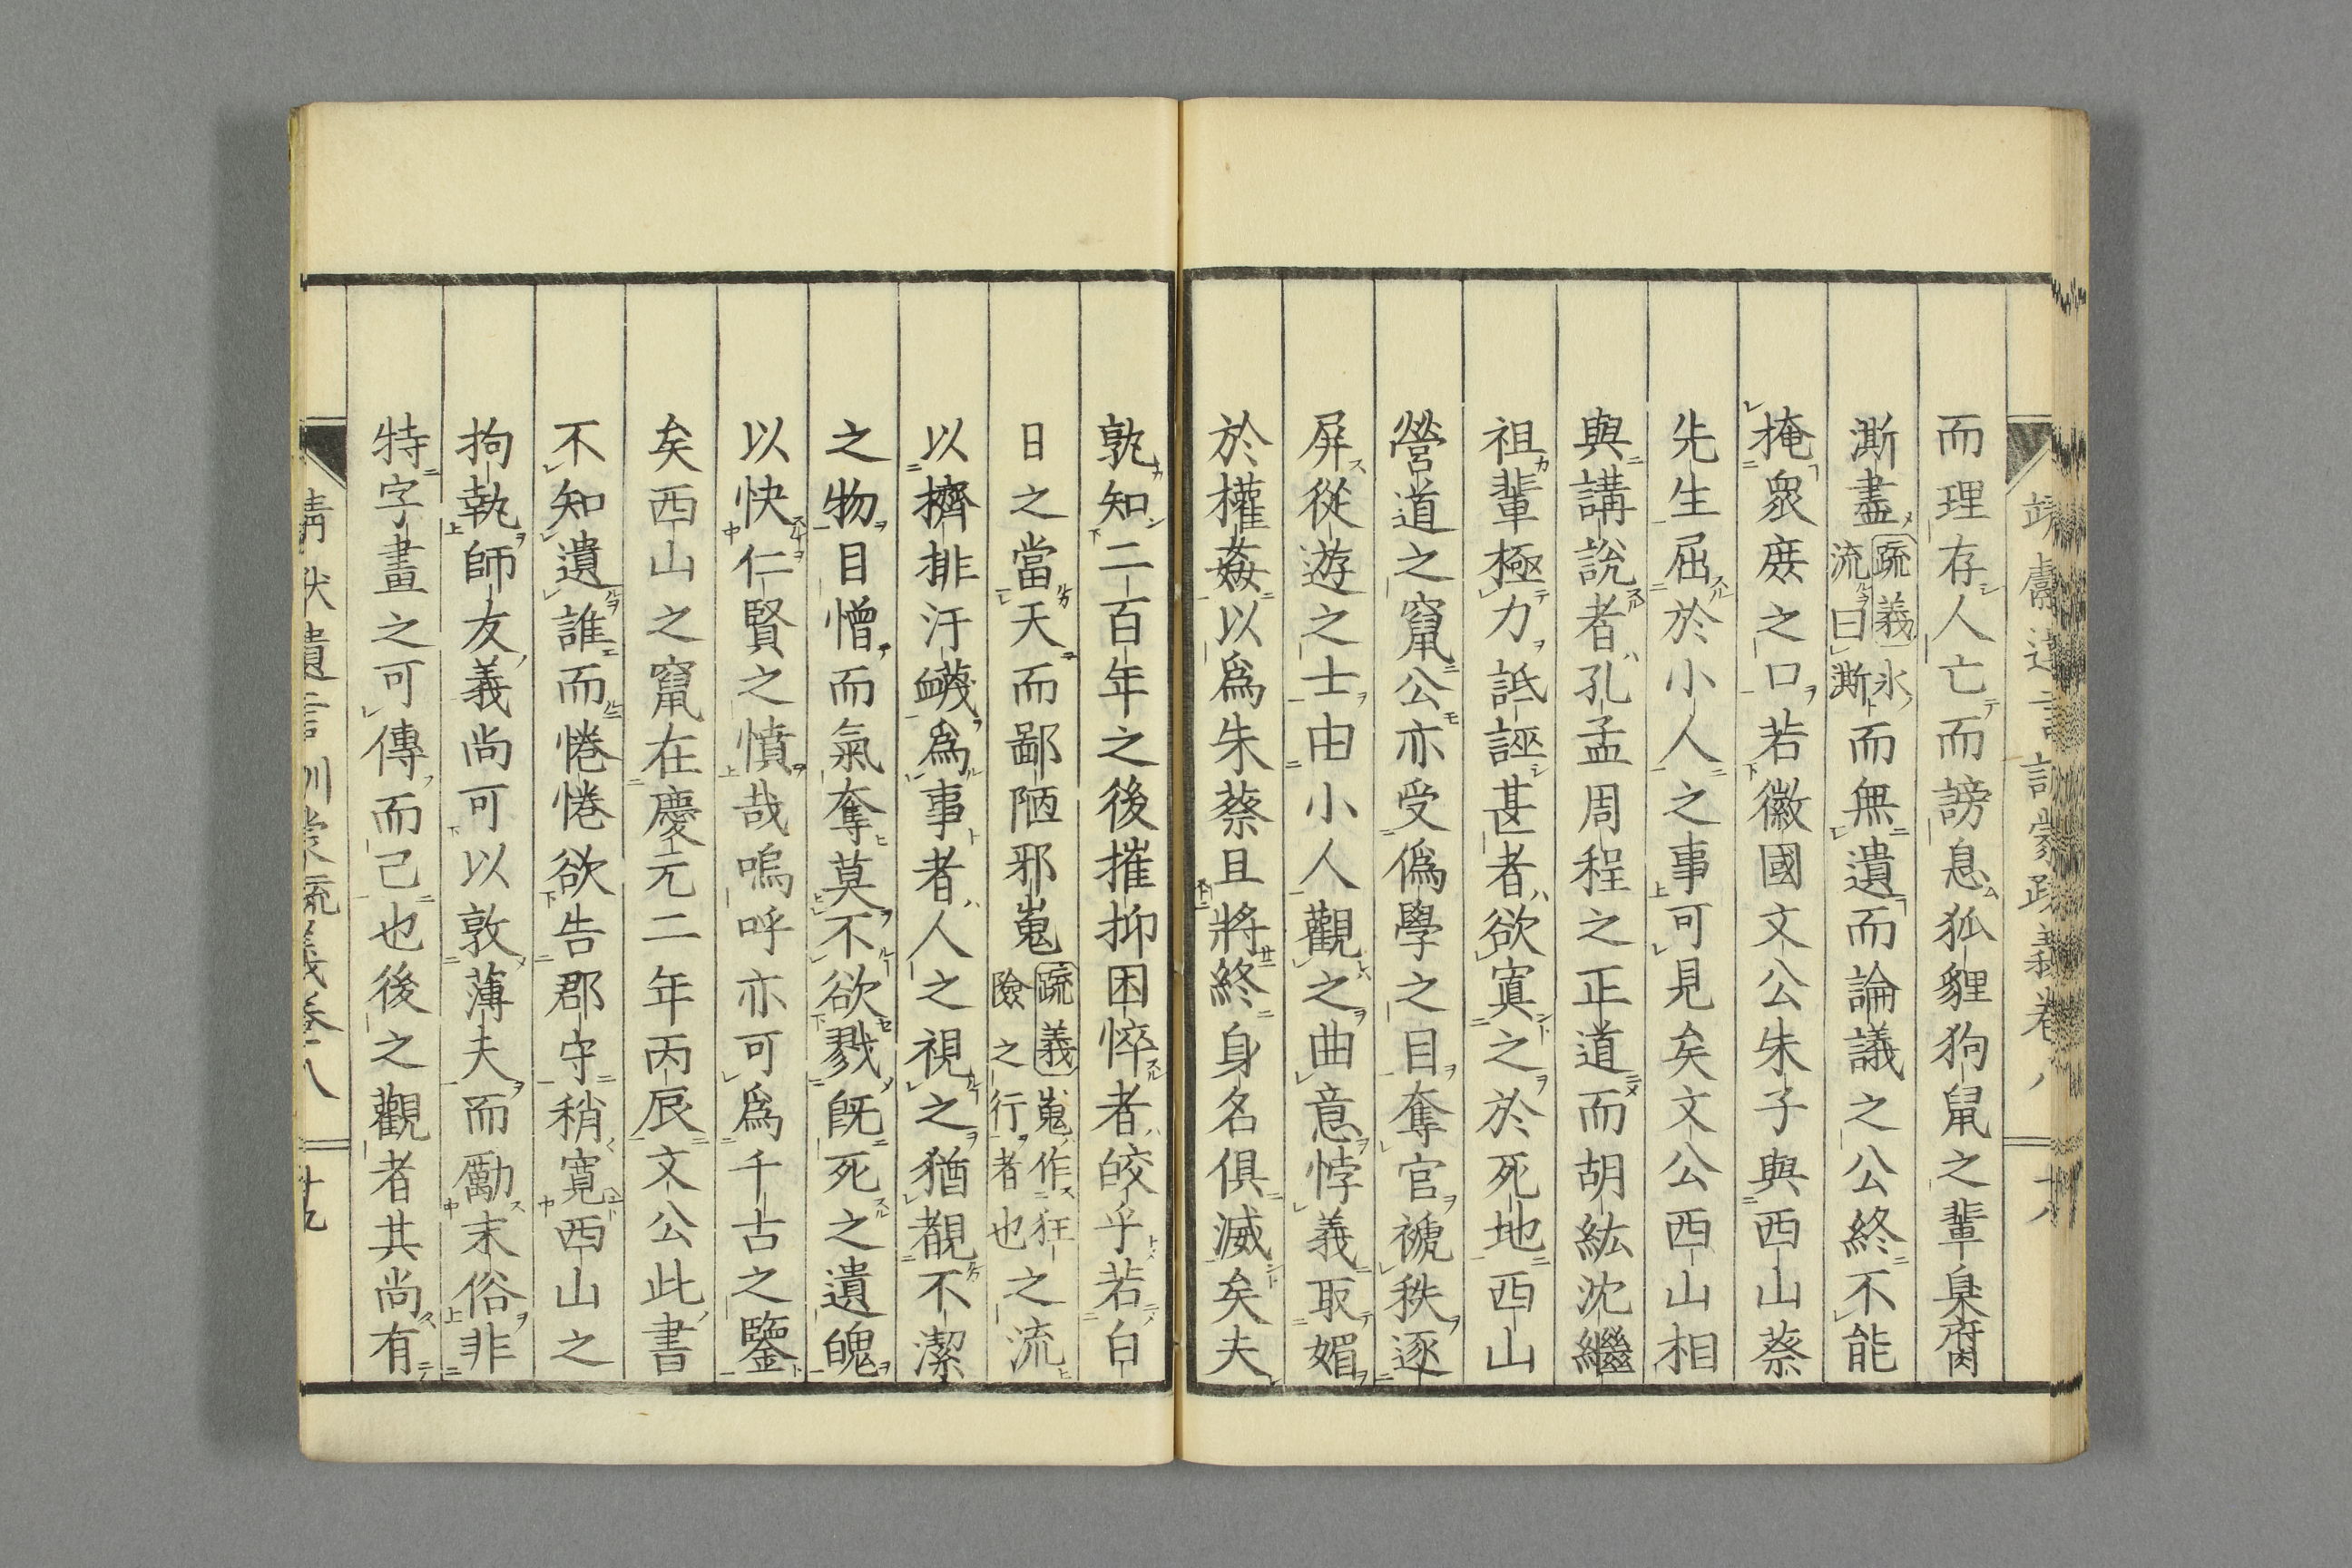 而理存人亡而謗息狐貍狗鼠之輩臭腐
澌盡疏義氷流曰澌而無遺而論議之公終不能
掩衆庻之口若徽國文公朱子與西山蔡
先生屈於小人之事可見矣文公西山相
與講說者孔孟周程之正道而胡紘沈繼
祖輩極力詆誣甚者欲寘之於死地西山
營道之竄公亦受僞學之目奪官褫秩逐
屏從遊之士由小人觀之曲意悖義取媚
於權姦以爲朱蔡且將終身名俱滅矣夫
孰知二百年之後摧抑困悴者皎乎若白
日之當天而鄙陋邪嵬疏義嵬作狂險之行者也之流
以擠排汙衊爲事者人之視之猶覩不潔
之物目憎而氣奪莫不欲戮旣死之遺魄
以快仁賢之憤哉嗚呼亦可爲千古之鑒
矣西山之竄在慶元二年丙辰文公此書
不知遺誰而惓惓欲告郡守稍寬西山之
拘執師友義尚可以敦薄夫而勵末俗非
特字畫之可傳而已也後之觀者其尚有